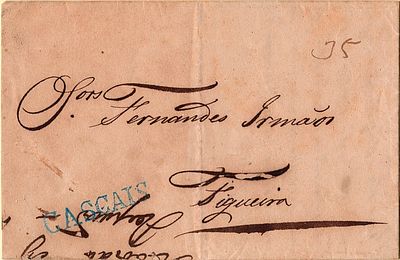 35
Sors
Fernandes Irmãos
Figueira
CASCAIS